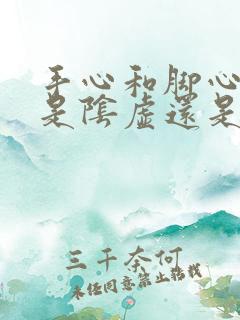 手心和脚心
是陰虛還是
三千奈何
未经同意禁止转载